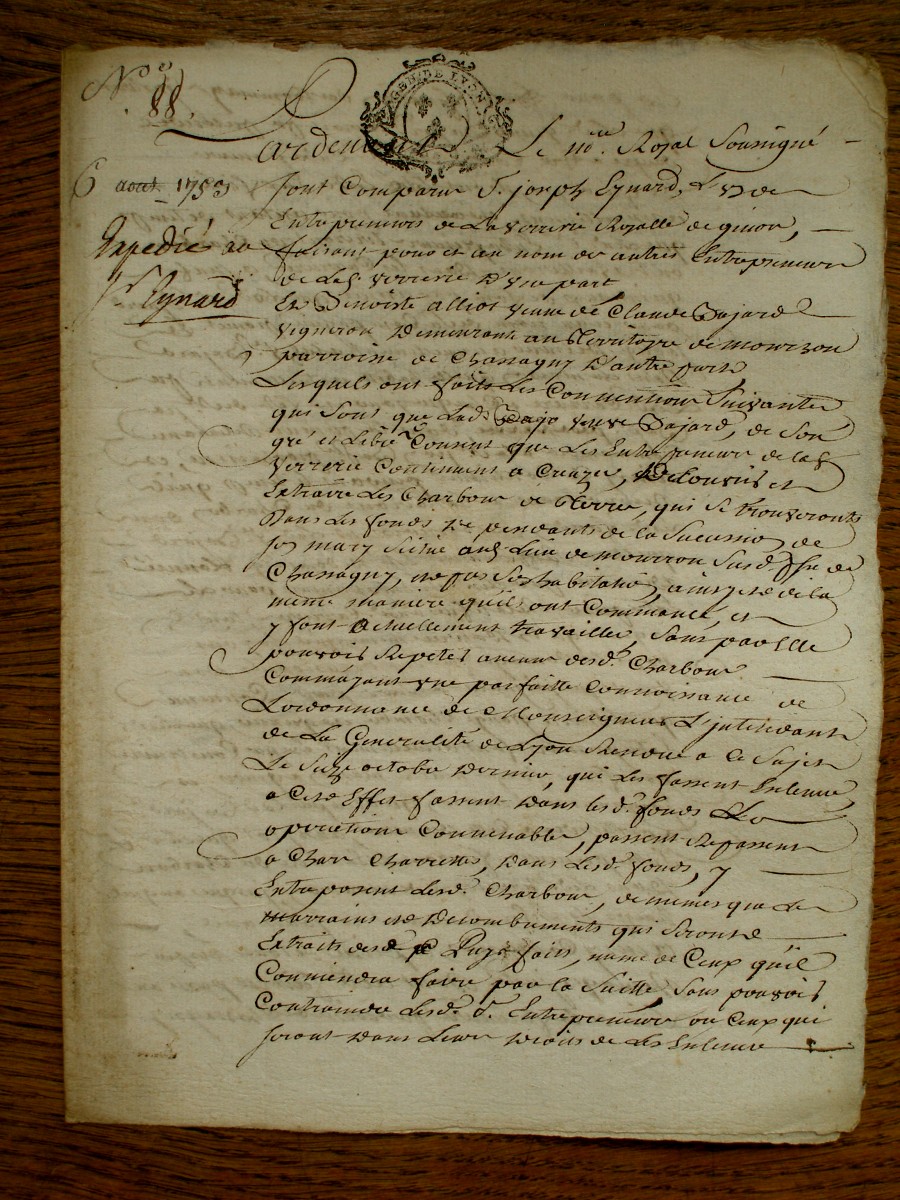 N.º
88.
GEN. DE LYON
Pardevant Le no.re Royal Soussigné
6 aout 1753
sont Comparu S.r joseph Eynard, L'un des
Entrepreneurs de La verrerie Royalle de givor,
Expedié au
S.r Eynard
faisant pour et au nom des autres Entrepreneurs
de Lad. verrerie D'une part
Et Benoiste alliot veuve de Claude Dajard
vigneron Demeurant au Territoire de mourron
parroisse de Chassagny D'autre part
Lesquels ont faits Les Conventions Suivantes
qui Sont que Lad. veuve Dajard, de Son
gré et Libre Consent que Les Entrepreneurs de lad.
verrerie Continuent a Creuzer, et
Extraire Les Charbons de Terre, qui se trouveronts
Dans Les fonds Dependants de la Sucession de
son mary Scitué aud. Lieu de mourron Susd. psse de
Chassagny, ainsy et de la
meme maniere qu'ils ont Commancé, et
y font actuellement travailler, Sans par Elle
pouvoir Repeter aucun desd. Charbons
Comme ayant une parfaitte Connoissance de
L'ordonnance de Monseigneur L'jntendant
de La Generalité de Lyon Rendue a Ce Sujet
Le Seize octobre Dernier, qui Les fassent Enlever
a Cet Effet fassent Dans lesd. fonds Les
operations Convenables, passent Repassent
a Char Charrettes, Dans Lesd. fonds, y
Entreposent Lesd. Charbons, de memes que Les
marrains et Decombements qui Seront
Extraits desd. Puys faits, meme de Ceux qu'il
Conviendra faire par la Suitte Sans pouvoir
Contraindre Lesd. S.rs Entrepreneurs ou Ceux qui
seront Dans Leurs Droits de Les Enlever